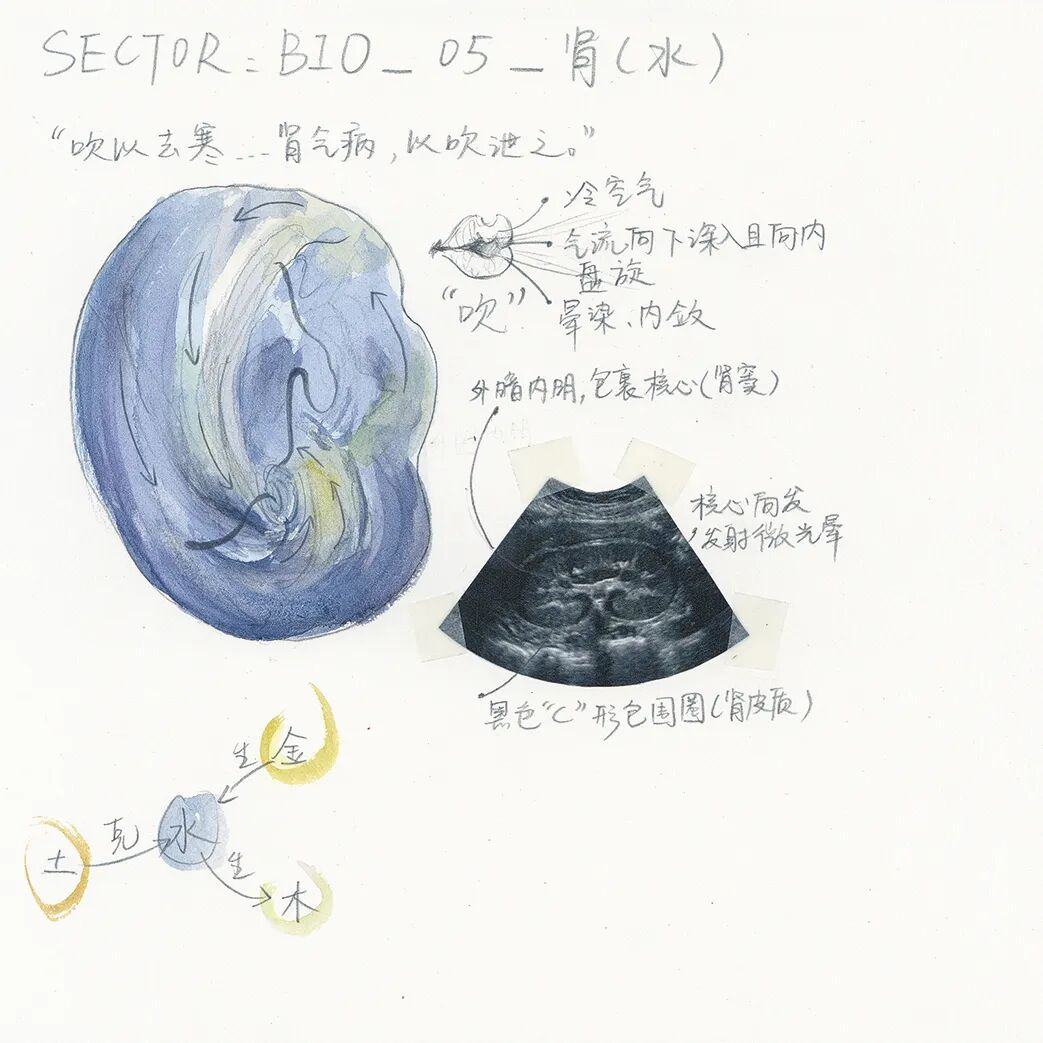 SECTOR: BIO_05_肾(水)
“吹以去寒...肾气病,以吹泄之。”
冷空气
气流向下深入且向内
盘旋
“吹”
晕染、内敛
外暗内明,包裹核心(肾窦)
核心向发
发射微光晕
黑色“C”形包围圈(肾皮质)
金
生
水
克
土
生
木